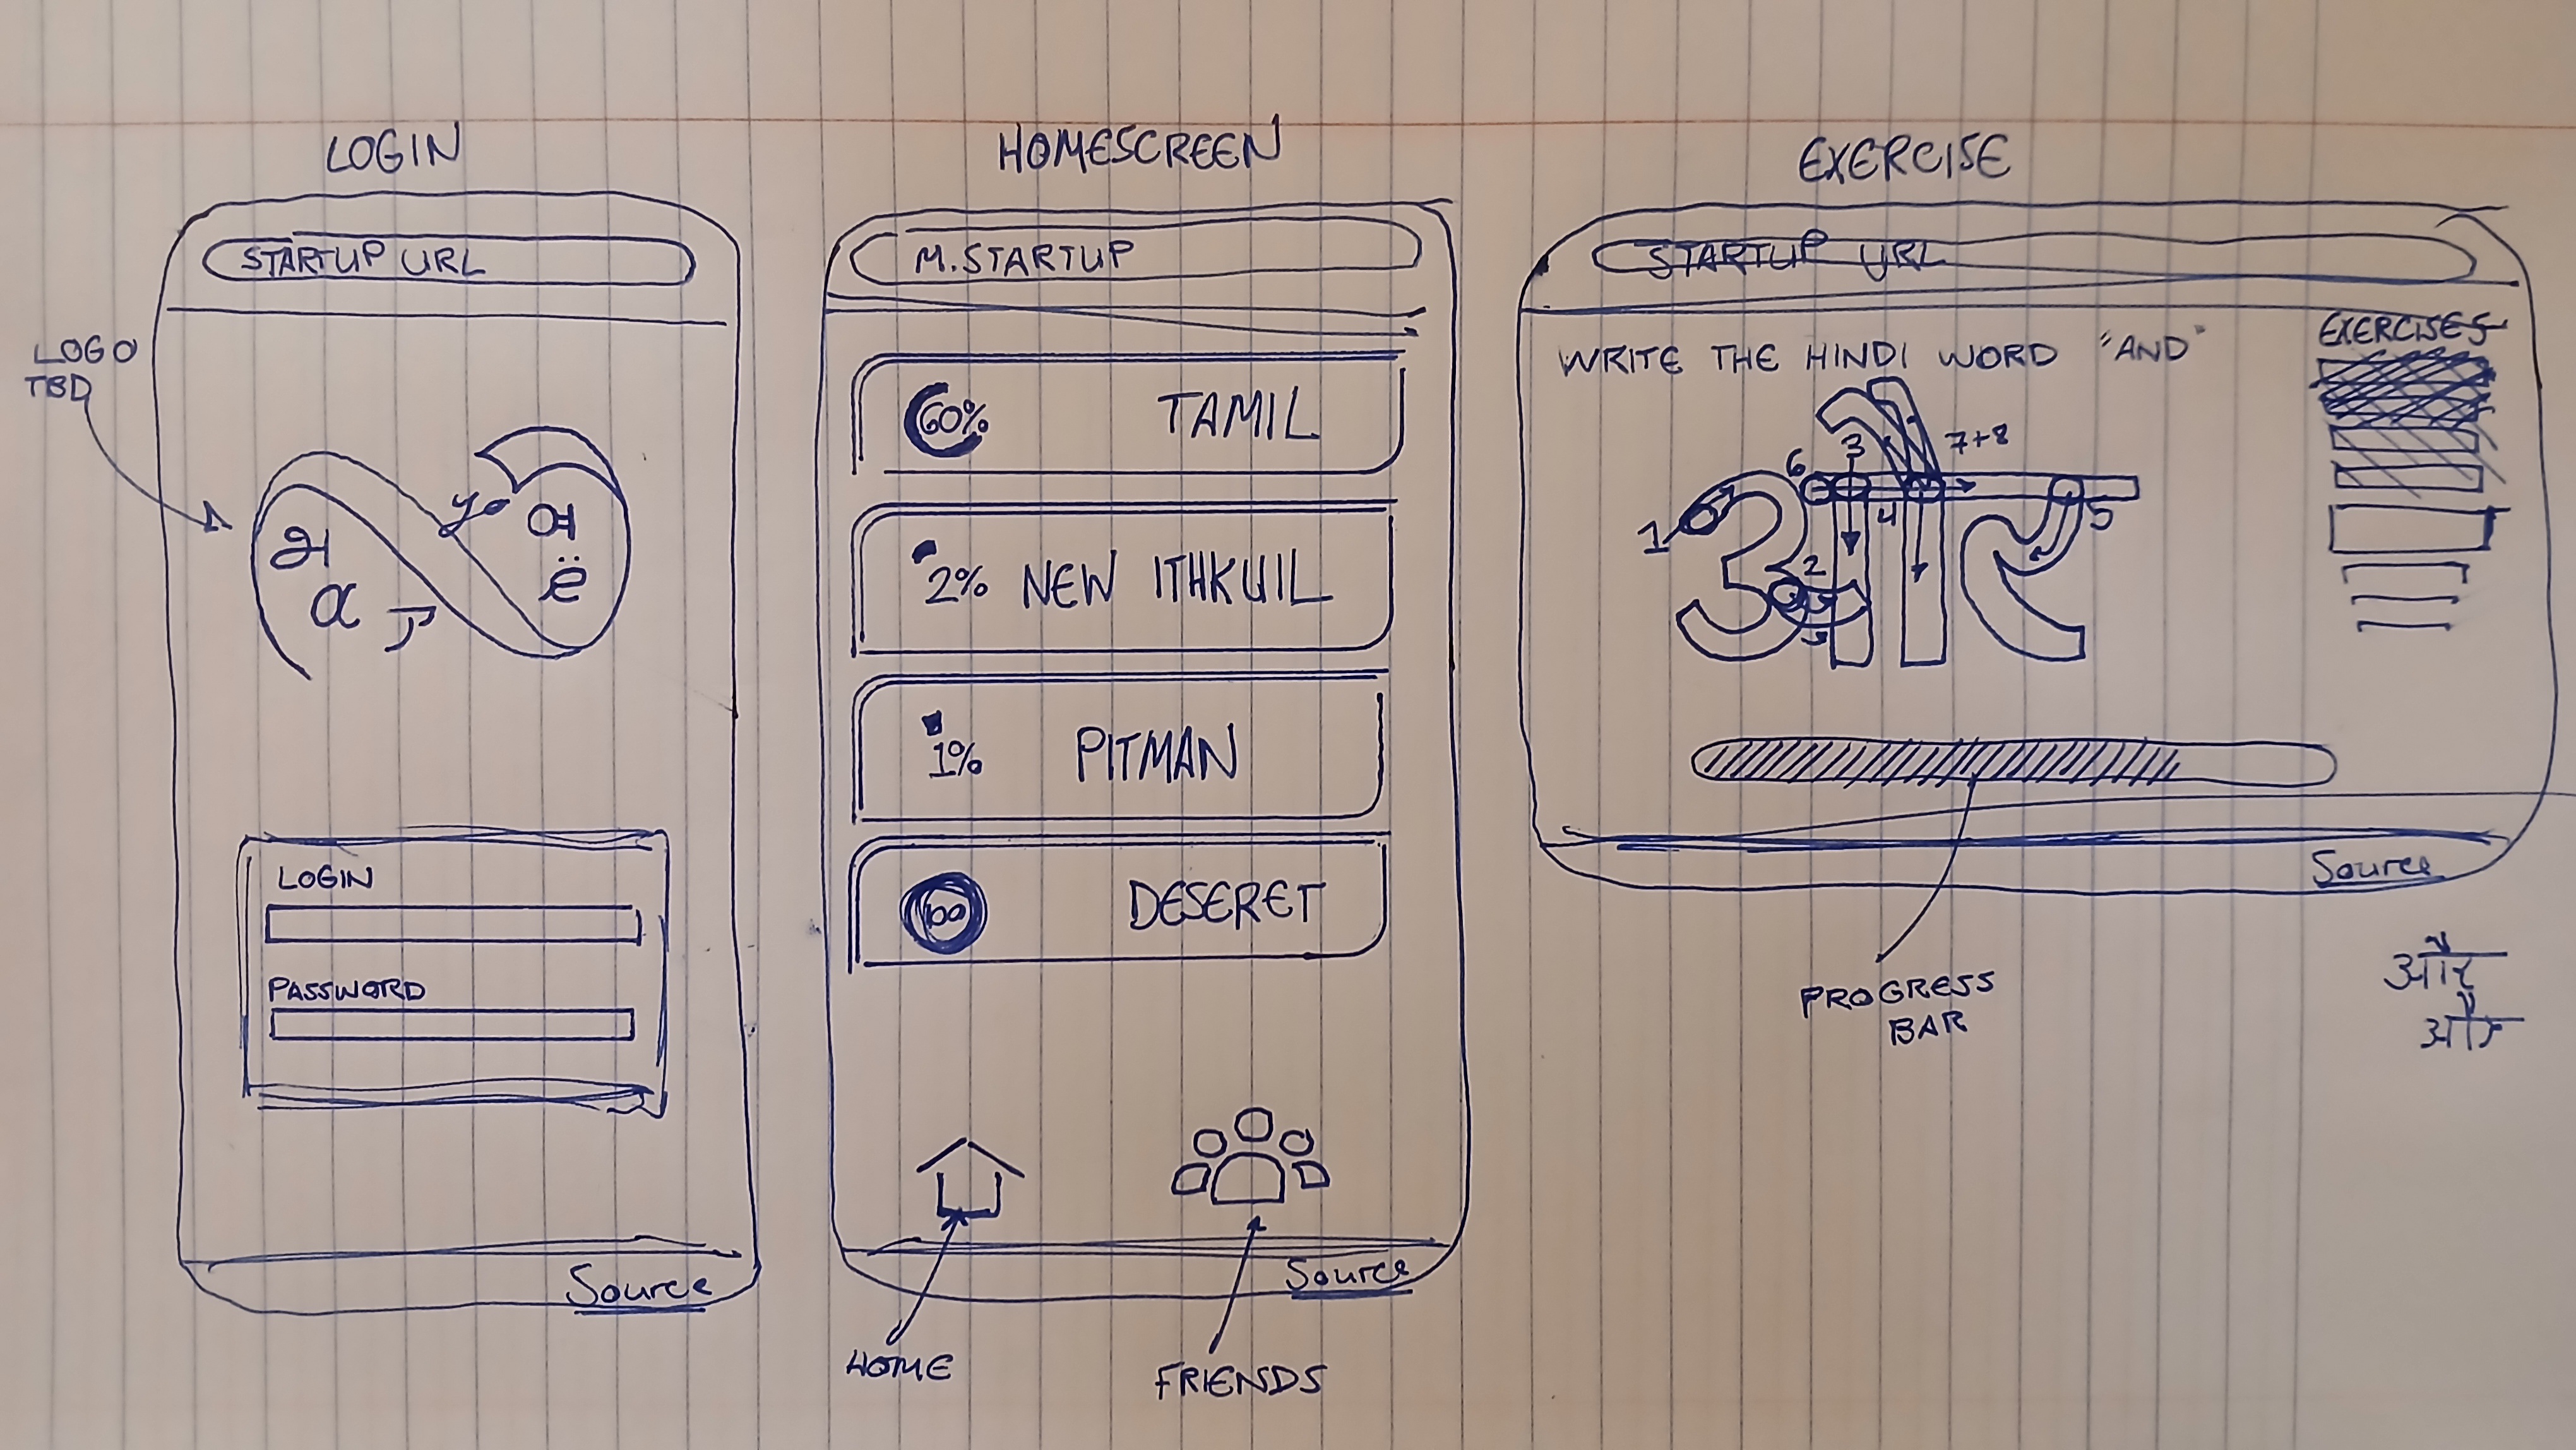 LOGIN
STARTUP URL
LOGO
TBD
அ
α
ア
ё
LOGIN
PASSWORD
Source
HOMESCREEN
M.STARTUP
60% TAMIL
2% NEW ITHKUIL
1% PITMAN
100 DESERET
Source
HOME
FRIENDS
EXERCISE
STARTUP URL
EXERCISES
WRITE THE HINDI WORD "AND"
और
1 2 3 4 5 6 7+8
Source
PROGRESS
BAR
और
और